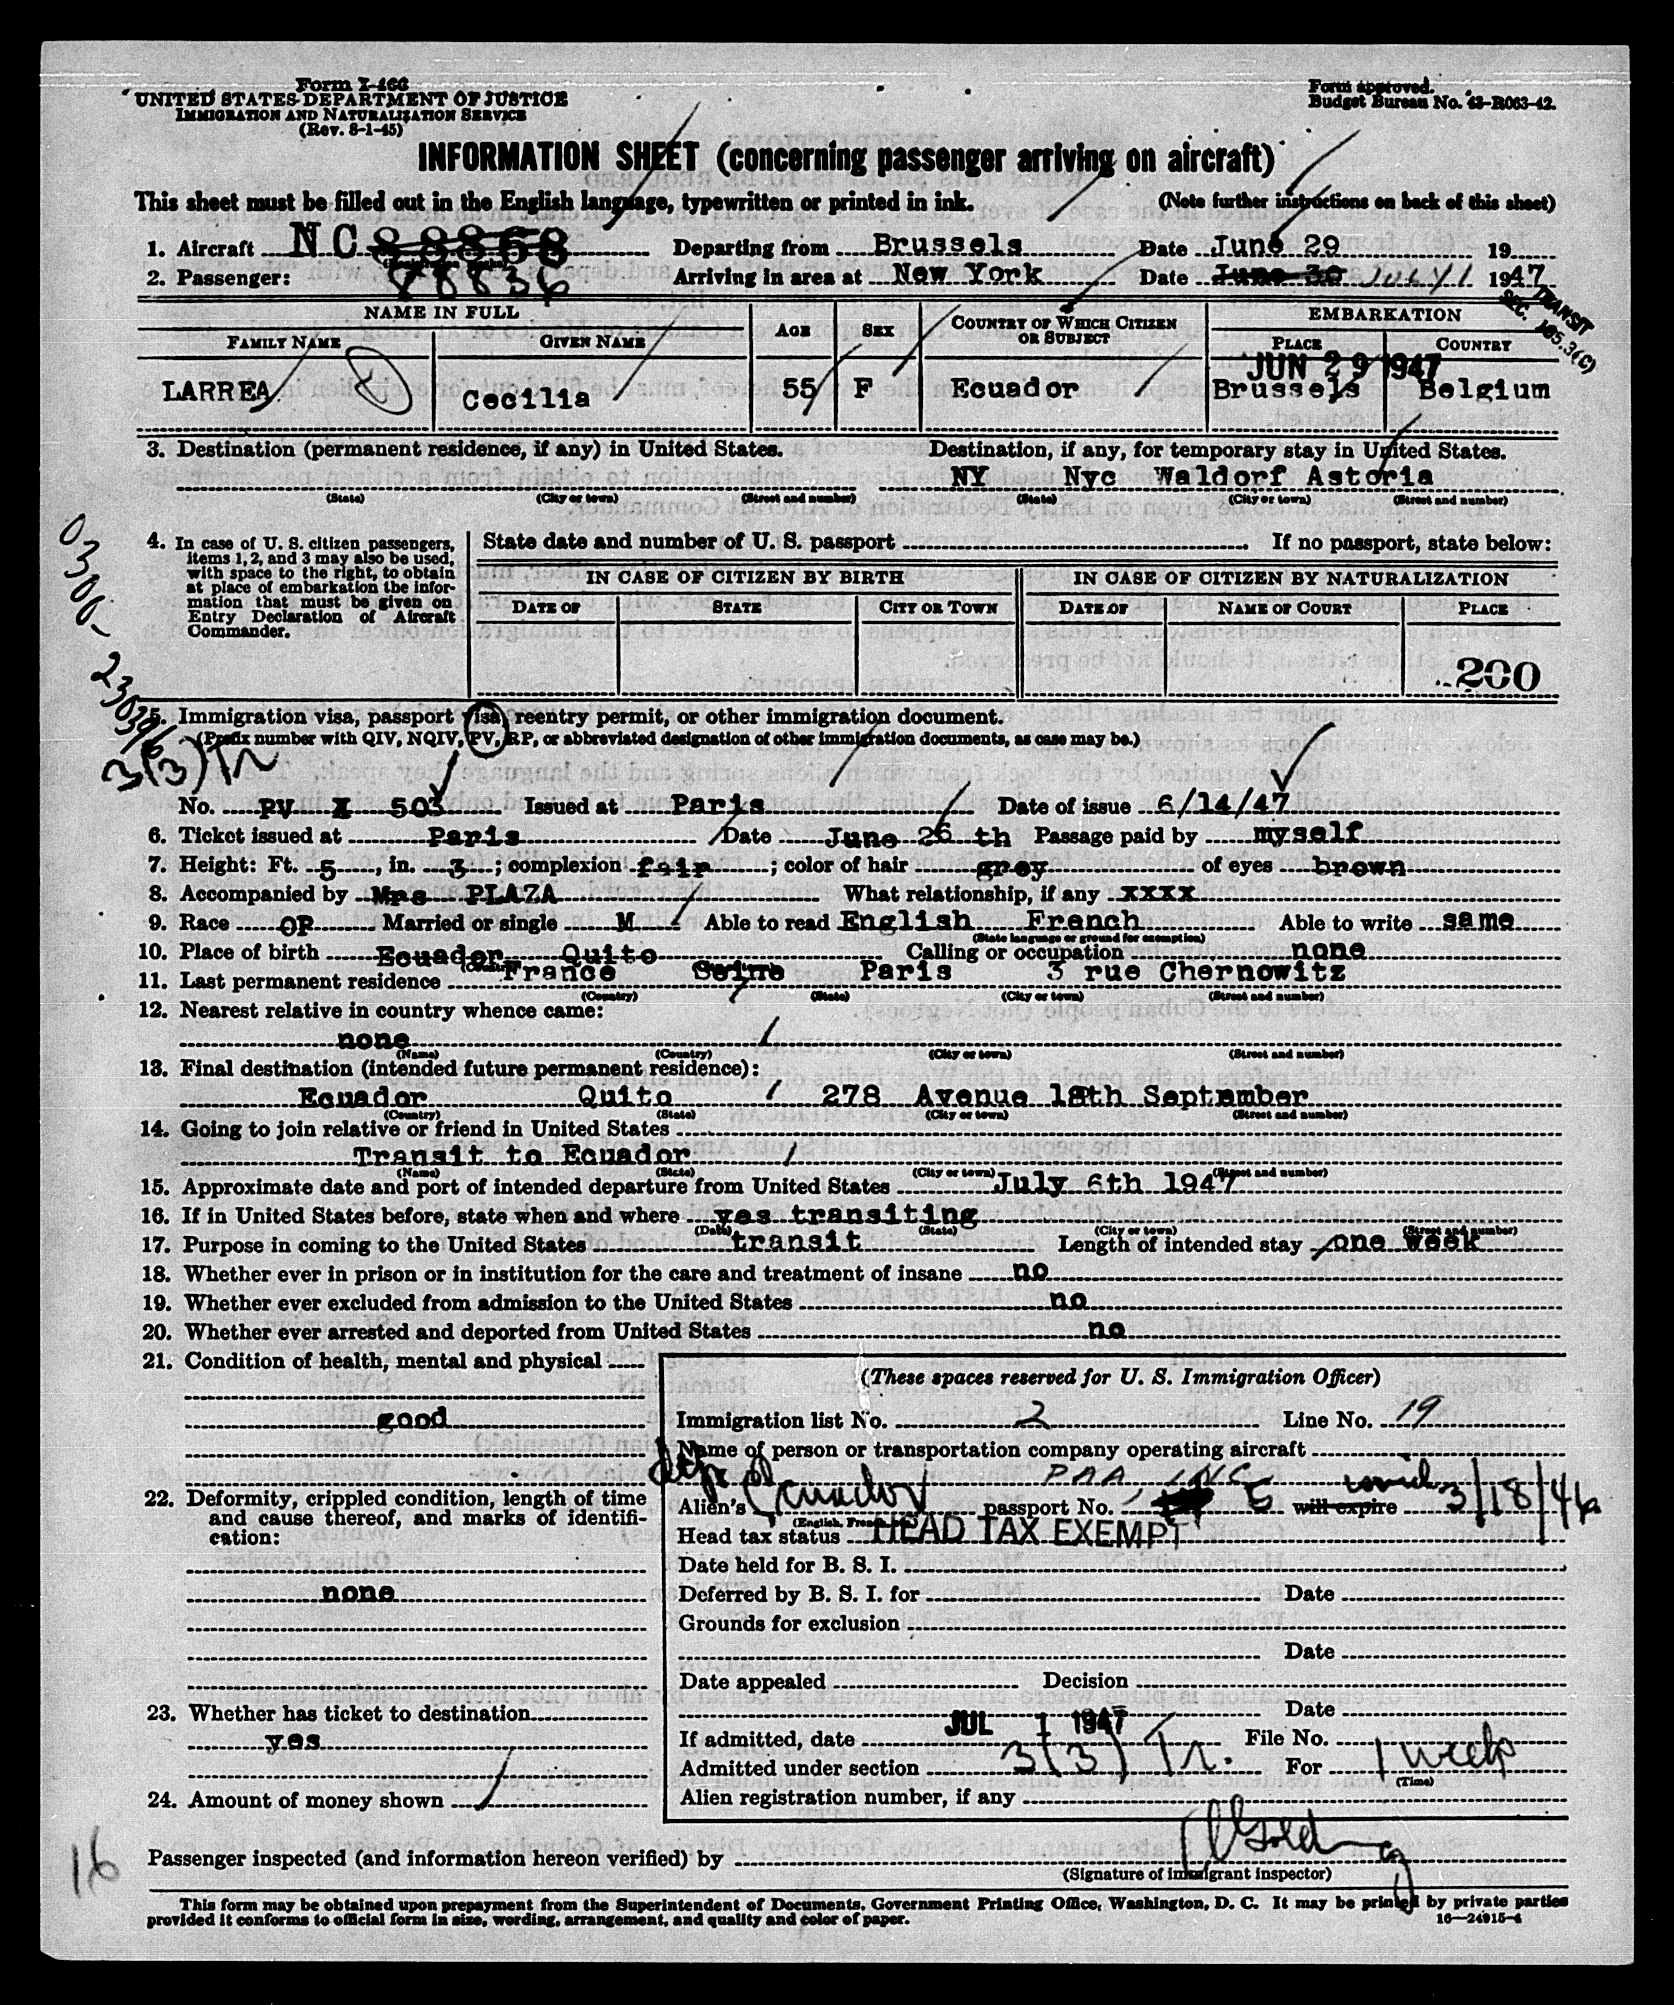 Form I-466
UNITED STATES DEPARTMENT OF JUSTICE
IMMIGRATION AND NATURALIZATION SERVICE
(Rev. 8-1-45)
Form approved.
Budget Bureau No. 43-R063-42.
INFORMATION SHEET (concerning passenger arriving on aircraft)
This sheet must be filled out in the English language, typewritten or printed in ink.
(Note further instructions on back of this sheet)
1. Aircraft NC 88868 Departing from Brussels Date June 29 19
2. Passenger: 88836 Arriving in area at New York Date June 30 JULY 1 1947
TRANSIT
SEC. 105.3(C)
NAME IN FULL AGE SEX COUNTRY OF WHICH CITIZEN OR SUBJECT EMBARKATION
FAMILY NAME GIVEN NAME PLACE COUNTRY
JUN 29 1947
LARREA Cecilia 55 F Ecuador Brussels Belgium
3. Destination (permanent residence, if any) in United States. Destination, if any, for temporary stay in United States.
NY Nyc Waldorf Astoria
(State) (City or town) (Street and number) (State) (City or town) (Street and number)
0300-23039/6
3(3)Tr
4. In case of U. S. citizen passengers,
items 1, 2, and 3 may also be used,
with space to the right, to obtain
at place of embarkation the infor-
mation that must be given on
Entry Declaration of Aircraft
Commander.
State date and number of U. S. passport If no passport, state below:
IN CASE OF CITIZEN BY BIRTH IN CASE OF CITIZEN BY NATURALIZATION
DATE OF STATE CITY OR TOWN DATE OF NAME OF COURT PLACE
200
5. Immigration visa, passport visa, reentry permit, or other immigration document.
(Prefix number with QIV, NQIV, PV, RP, or abbreviated designation of other immigration documents, as case may be.)
No. PV X 503 Issued at Paris Date of issue 6/14/47
6. Ticket issued at Paris Date June 26 th Passage paid by myself
7. Height: Ft. 5, in. 3; complexion fair; color of hair grey of eyes brown
8. Accompanied by Mrs PLAZA What relationship, if any xxxx
9. Race OP Married or single M Able to read English French Able to write same
(State language or ground for exemption)
10. Place of birth Ecuador Quito Calling or occupation none
11. Last permanent residence France Seine Paris 3 rue Chernowitz
(Country) (State) (City or town) (Street and number)
12. Nearest relative in country whence came:
none
(Name) (Country) (City or town) (Street and number)
13. Final destination (intended future permanent residence):
Ecuador Quito 278 Avenue 18th September
(Country) (State) (City or town) (Street and number)
14. Going to join relative or friend in United States
Transit to Ecuador
(Name) (State) (City or town) (Street and number)
15. Approximate date and port of intended departure from United States July 6th 1947
16. If in United States before, state when and where yes transiting
(Date) (State) (City or town) (Street and number)
17. Purpose in coming to the United States transit Length of intended stay one week
18. Whether ever in prison or in institution for the care and treatment of insane no
19. Whether ever excluded from admission to the United States no
20. Whether ever arrested and deported from United States no
21. Condition of health, mental and physical
good
22. Deformity, crippled condition, length of time
and cause thereof, and marks of identifi-
cation:
none
23. Whether has ticket to destination
yes
24. Amount of money shown
(These spaces reserved for U. S. Immigration Officer)
Immigration list No. 2 Line No. 19
Name of person or transportation company operating aircraft
PAA INC
Alien's Ecuador passport No. 5 will expire 3/18/46
Head tax status HEAD TAX EXEMPT
Date held for B. S. I.
Deferred by B. S. I. for Date
Grounds for exclusion
Date
Date appealed Decision
Date
If admitted, date JUL 1 1947 File No.
Admitted under section 3(3) Tr. For 1 week
(Time)
Alien registration number, if any
16
Passenger inspected (and information hereon verified) by
(Signature of immigrant inspector)
This form may be obtained upon prepayment from the Superintendent of Documents, Government Printing Office, Washington, D. C. It may be printed by private parties
provided it conforms to official form in size, wording, arrangement, and quality and color of paper.
16—24915-4